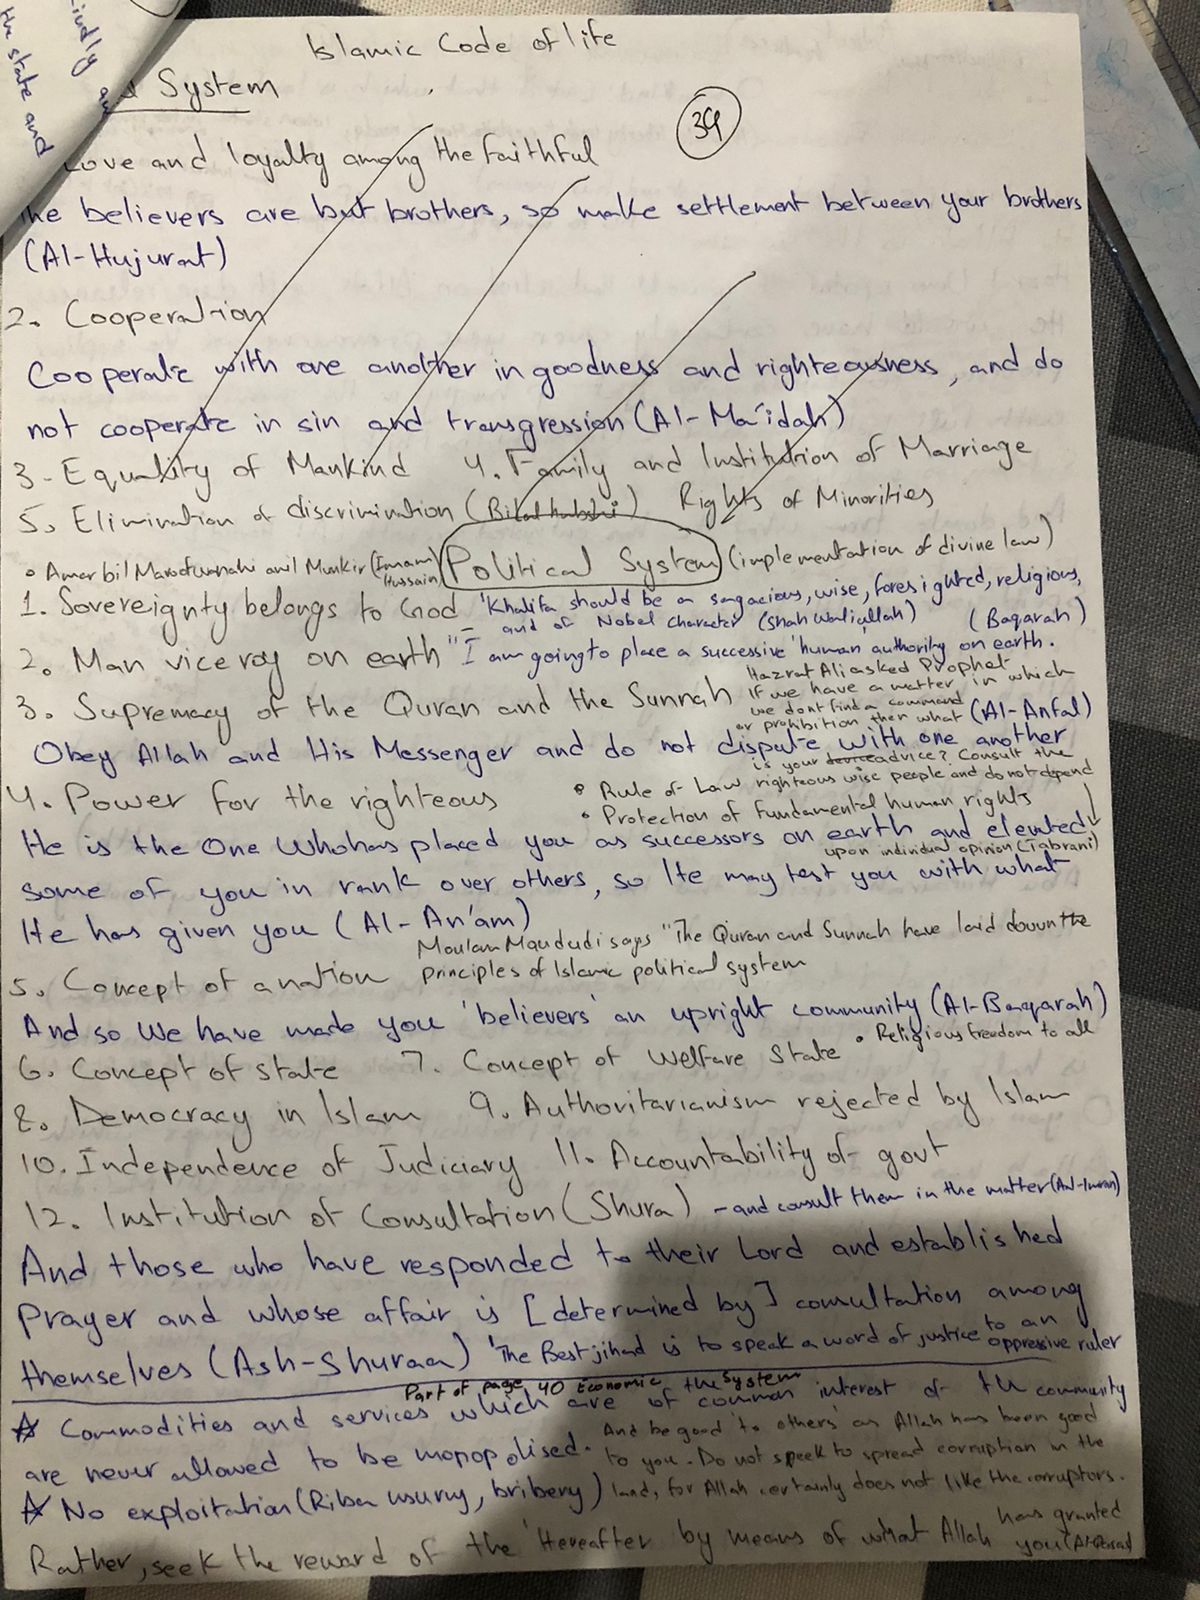 indly
the state and
Islamic Code of life
System
39
Love and loyalty among the faithful
The believers are but brothers, so make settlement between your brothers
(Al-Hujurat)
2. Cooperation
Cooperate with one another in goodness and righteousness, and do
not cooperate in sin and transgression (Al-Ma'idah)
3- Equality of Mankind 4. Family and Institution of Marriage
5. Elimination of discrimination (Bilal habshi) Rights of Minorities
• Amar bil Maroof wanahi anil Munkir (Imam Hussain) Political System (implementation of divine law)
1. Sovereignty belongs to God - 'Khalifa should be a sagacious, wise, foresighted, religious,
and of Nobel Character (Shah Waliullah) (Baqarah)
2. Man viceroy on earth "I am going to place a successive 'human authority on earth.
3. Supremacy of the Quran and the Sunnah
Hazrat Ali asked Prophet
If we have a matter in which
we dont find a command
or prohibition then what (Al-Anfal)
Obey Allah and His Messenger and do not dispute with one another
is your advice? Consult the
4. Power for the righteous
• Rule of Law righteous wise people and do not depend
• Protection of fundamental human rights
He is the One Who has placed you as successors on earth and elevated
upon individual opinion (Tabrani)
some of you in rank over others, so He may test you with what
He has given you (Al-An'am)
Moulana Maududi says "The Quran and Sunnah have laid down the
5. Concept of a nation principles of Islamic political system
And so We have made you 'believers' an upright community (Al-Baqarah)
• Religious freedom to all
6. Concept of state 7. Concept of Welfare State
8. Democracy in Islam 9. Authoritarianism rejected by Islam
10. Independence of Judiciary 11. Accountability of govt
12. Institution of Consultation (Shura) - and consult them in the matter (Aal-Imran)
And those who have responded to their Lord and established
Prayer and whose affair is [determined by] consultation among
themselves (Ash-Shuraa) 'The Best jihad is to speak a word of justice to an oppressive ruler
Part of page 40 Economic System
☆ Commodities and services which are of the common interest of the community
are never allowed to be monopolised.
And be good 'to others' as Allah has been good
to you. Do not speek to spread corruption in the
☆ No exploitation (Riba usury, bribery) land, for Allah certainly does not like the corruptors.
Rather, seek the reward of the 'Hereafter by means of what Allah has granted you